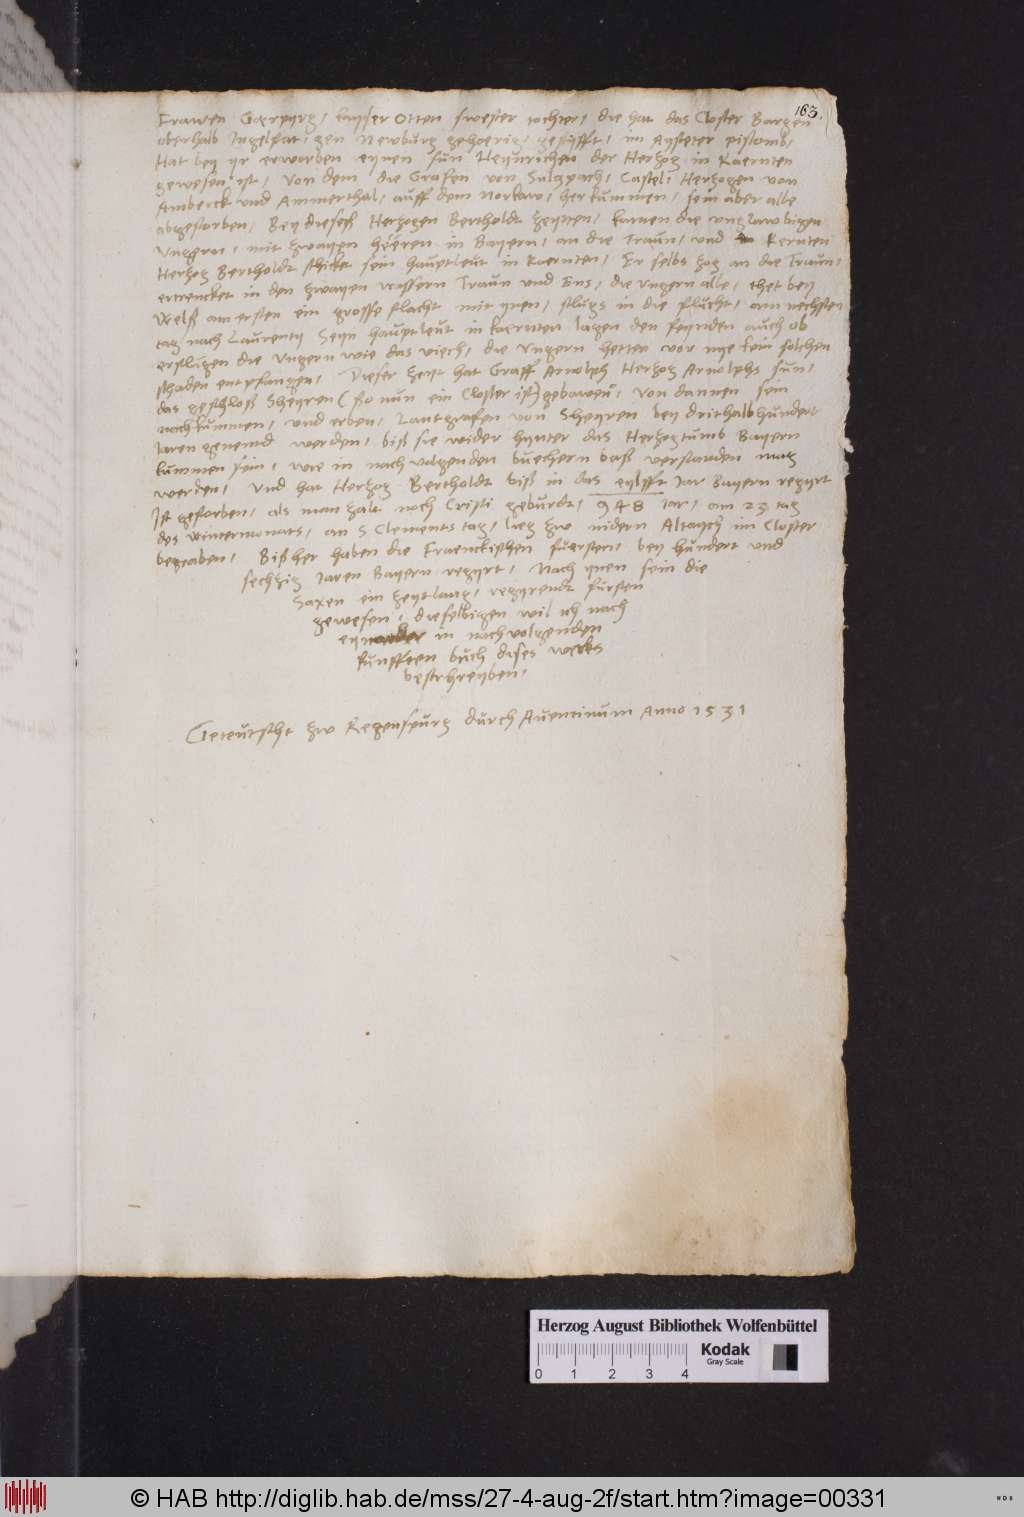 163.
Frawen Gerpirg, kayser Otten swester tochter, die hat das Closter Bargen
oberhalb Ingelstat, gen Newburg gehoerig, gestifft, im Aysteter pistomb,
Hat bey yr erworben eynen sun Heynrichen der Hertzog in Kaernten
gewesen ist, von dem die Grafen von Sulzpach, Castel, Hertzogen von
Amberck und Ammerthal, auff dem Norkaw, herkummen, sein aber alle
abgestorben, Bey diesess Hertzogen Bertholdt zeytten, kamen die unglawbigen
Ungern, mit zwayen heeren in Bayern, an die Traun, und Kernten
Hertzog Bertholdt schickt sein hauptleut in Kaernten, Er selbs zog an die Traun,
ertrencket in den zwayen wassern Traun und Ens, die Ungern alle, thet bey
Welss am ersten ein grosse slacht mit ynen, slugs in die flucht, am nechsten
tag nach Laurenty Seyn hauptleut in kaernten lagen den feynden auch ob
erslugen die Ungern wie das viech, die Ungern hetten vor nye kein solchen
schaden entpfangen, Dieser zeyt hat Graff Arnolph Hertzog Arnolphs sun,
das geschloss Sheyren (so nun ein Closter ist) gebawen, von dannen sein
nachkummen, und erben, Lantgrafen von Sheyren bey drithalbhundert
Jaren genennd werden, biss sie wider hynter das Hertzogtumb Bayern
kummen sein, wie in nachvolgenden buechern bass verstanden mag
werden, Und hat Hertzog Bertholdt biss in das eylfft Jar Bayern regyrt
Ist gestorben, als man zalt noch Cristi geburdt, 948 iar, am 23 tag
des Wintermonats, an S Clements tag, lieg zw nidern Altaych im Closter
begraben, Bissher haben die Fraenckisshen fuersten, bey hundert und
sechzig Jaren Bayern regyrt, Nach ynen sein die
Saxen ein zeytlang, regyrendt fursten
gewesen, dieselbigen wil ich nach
eynander in nachvolgenden
funfften buch dises werks
beschreyben,
Geteutscht zw Regenspurg durch Auentinum Anno 1531
Herzog August Bibliothek Wolfenbüttel
0 1 2 3 4
Kodak
Gray Scale
© HAB http://diglib.hab.de/mss/27-4-aug-2f/start.htm?image=00331